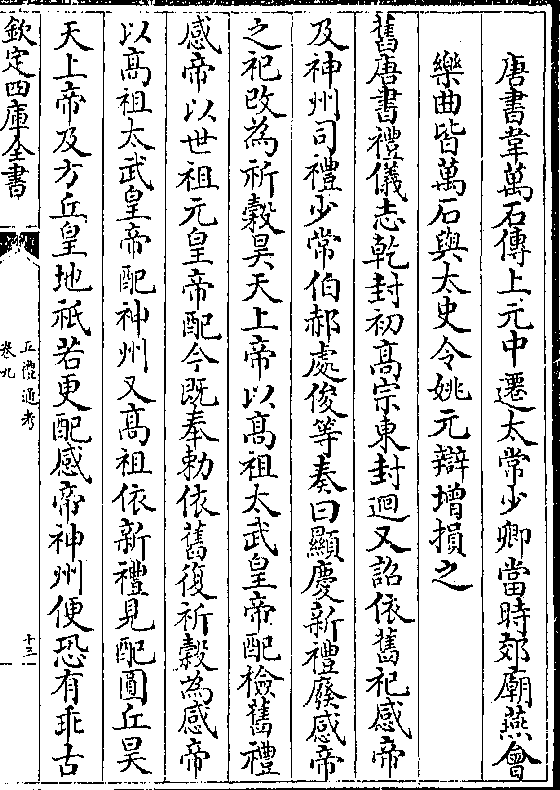 唐書韋萬石傳上元中遷太常少卿當時郊廟燕會
樂曲皆萬石與太史令姚元辯增損之
舊唐書禮儀志乾封初高宗東封迴又詔依舊祀感帝
及神州司禮少常伯郝處俊等奏曰顯慶新禮廢感帝
之祀改為祈穀昊天上帝以高祖太武皇帝配檢舊禮
感帝以世祖元皇帝配今既奉勅依舊復祈穀為感帝
以高祖太武皇帝配神州又高祖依新禮見配圓丘昊
天上帝及方丘皇地祇若更配感帝神州便恐有乖古
欽定四庫全書
五禮通考
卷九
十三